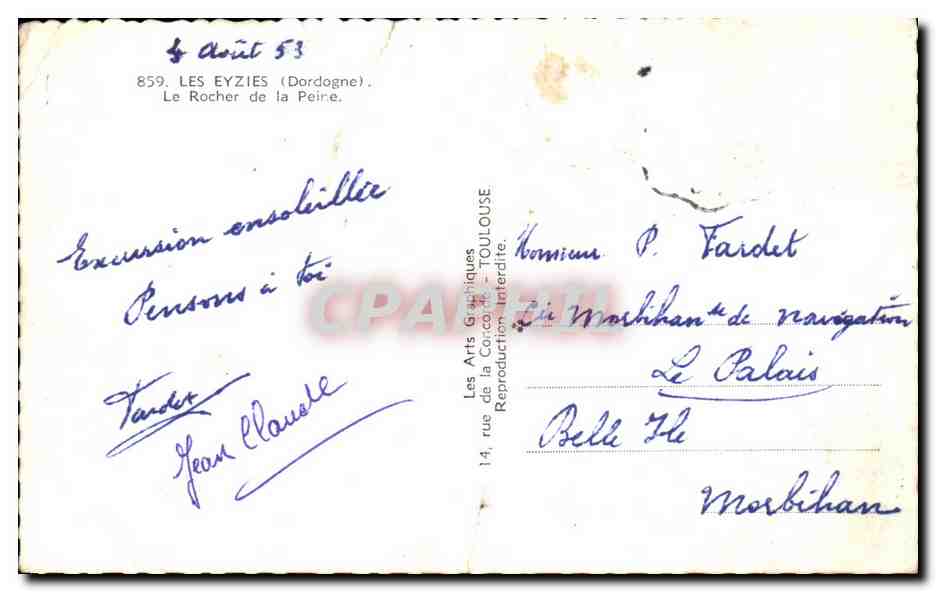 4 Août 53
859. LES EYZIES (Dordogne).
Le Rocher de la Peine.
Excursion ensoleillée
Pensons à toi
Tardet
Jean Claude
Les Arts Graphiques
14, rue de la Concorde - TOULOUSE
Reproduction Interdite.
CPAPHIL
Monsieur P. Tardet
Cie Morbihanse de navigation
Le Palais
Belle Ile
Morbihan